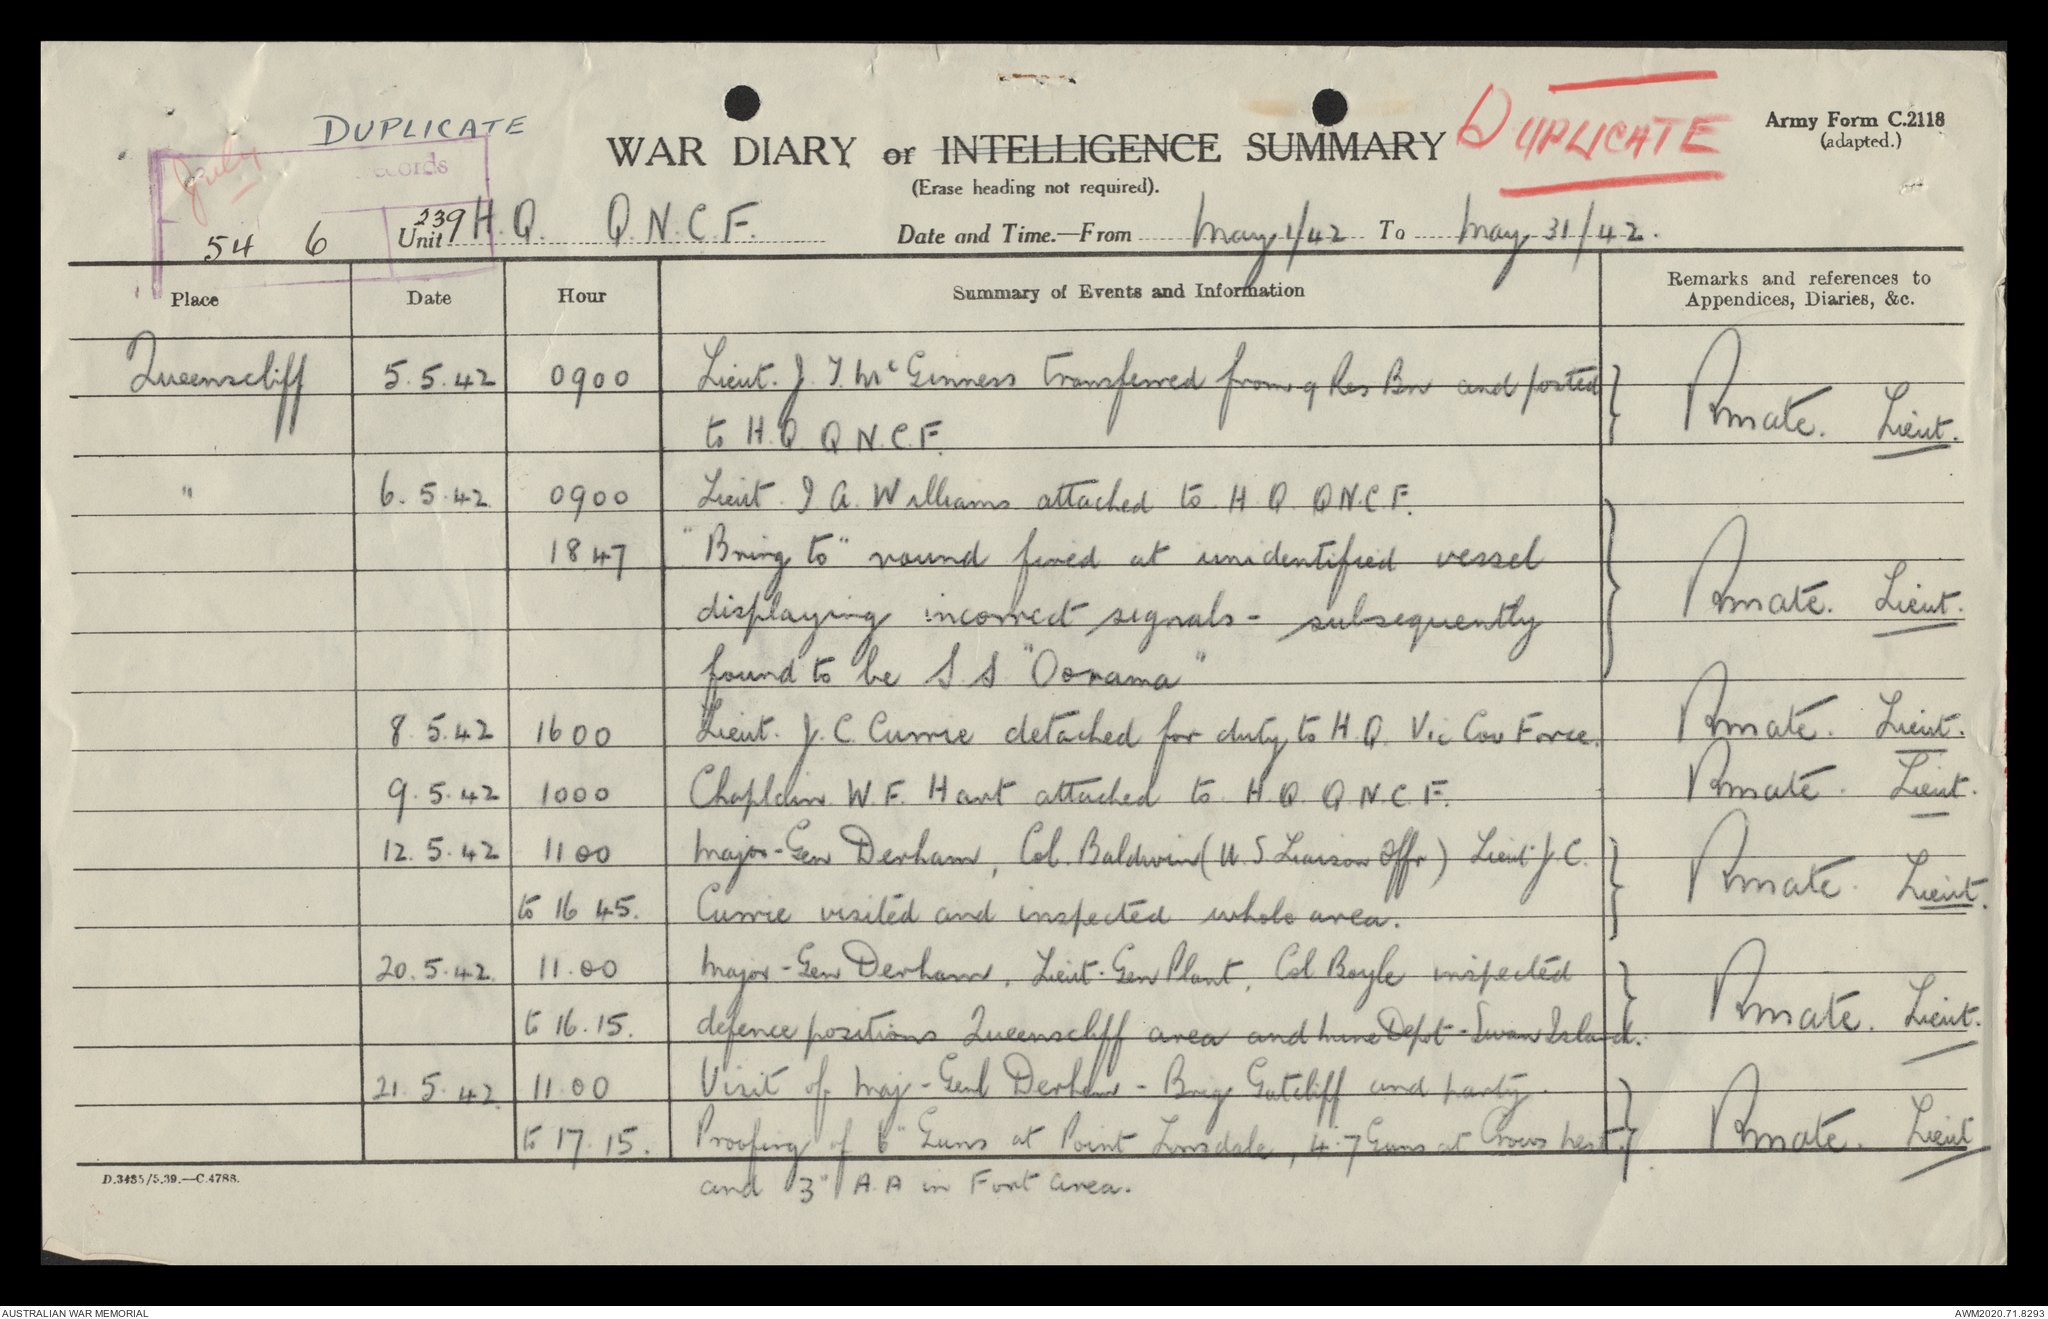 DUPLICATE
DUPLICATE
Army Form C.2118
(adapted.)
WAR DIARY or INTELLIGENCE SUMMARY
(Erase heading not required).
July
cords
54 6
239
Unit H.Q. Q.N.C.F. Date and Time.—From May 1/42 To May 31/42.
Place Date Hour Summary of Events and Information Remarks and references to
Appendices, Diaries, &c.
Queenscliff 5.5.42 0900 Lieut. J. T. McGinness transferred from 9 Res Bn and posted
to H.Q. Q.N.C.F. Lieut.
" 6.5.42 0900 Lieut. I A. Williams attached to H.Q. Q.N.C.F.
1847 "Bring to" round fired at unidentified vessel
displaying incorrect signals - subsequently Lieut.
found to be S.S "Oorama"
8.5.42 1600 Lieut. J.C. Currie detached for duty to H.Q. Vic Cov Force. Lieut.
9.5.42 1000 Chaplain W.F. Hart attached to H.Q. Q.N.C.F. Lieut.
12.5.42 1100 Major-Gen Derham, Col. Baldwin (U.S Liaison Offr) Lieut J.C.
to 1645. Currie visited and inspected whole area. Lieut.
20.5.42 11.00 Major-Gen Derham, Lieut-Gen Plant, Col Boyle inspected
to 16.15. defence positions Queenscliff area and Mine Depot - Swan Island. Lieut.
21.5.42 11.00 Visit of Maj-Genl Derham - Brig Gatcliff and party.
to 17.15. Proofing of 6" Guns at Point Lonsdale, 4.7 Guns at Crows Nest Lieut
and 3" A.A in Fort area.
D.3435/5.39.—C.4788.
AUSTRALIAN WAR MEMORIAL
AWM2020.71.8293